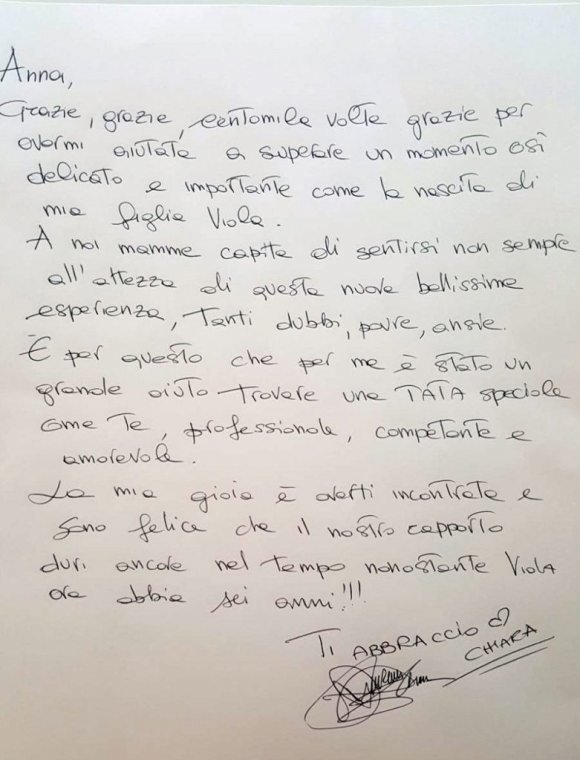 Anna,
Grazie, grazie, centomila volte grazie per
avermi aiutata a superare un momento così
delicato e importante come la nascita di
mia figlia Viola.
A noi mamme capita di sentirsi non sempre
all'altezza di questa nuova bellissima
esperienza, tanti dubbi, paure, ansie.
È per questo che per me è stato un
grande aiuto trovare una TATA speciale
come te, professionale, competente e
amorevole.
La mia gioia è averti incontrata e
sono felice che il nostro rapporto
duri ancora nel tempo nonostante Viola
ora abbia sei anni!!!
Ti ABBRACCIO
CHIARA